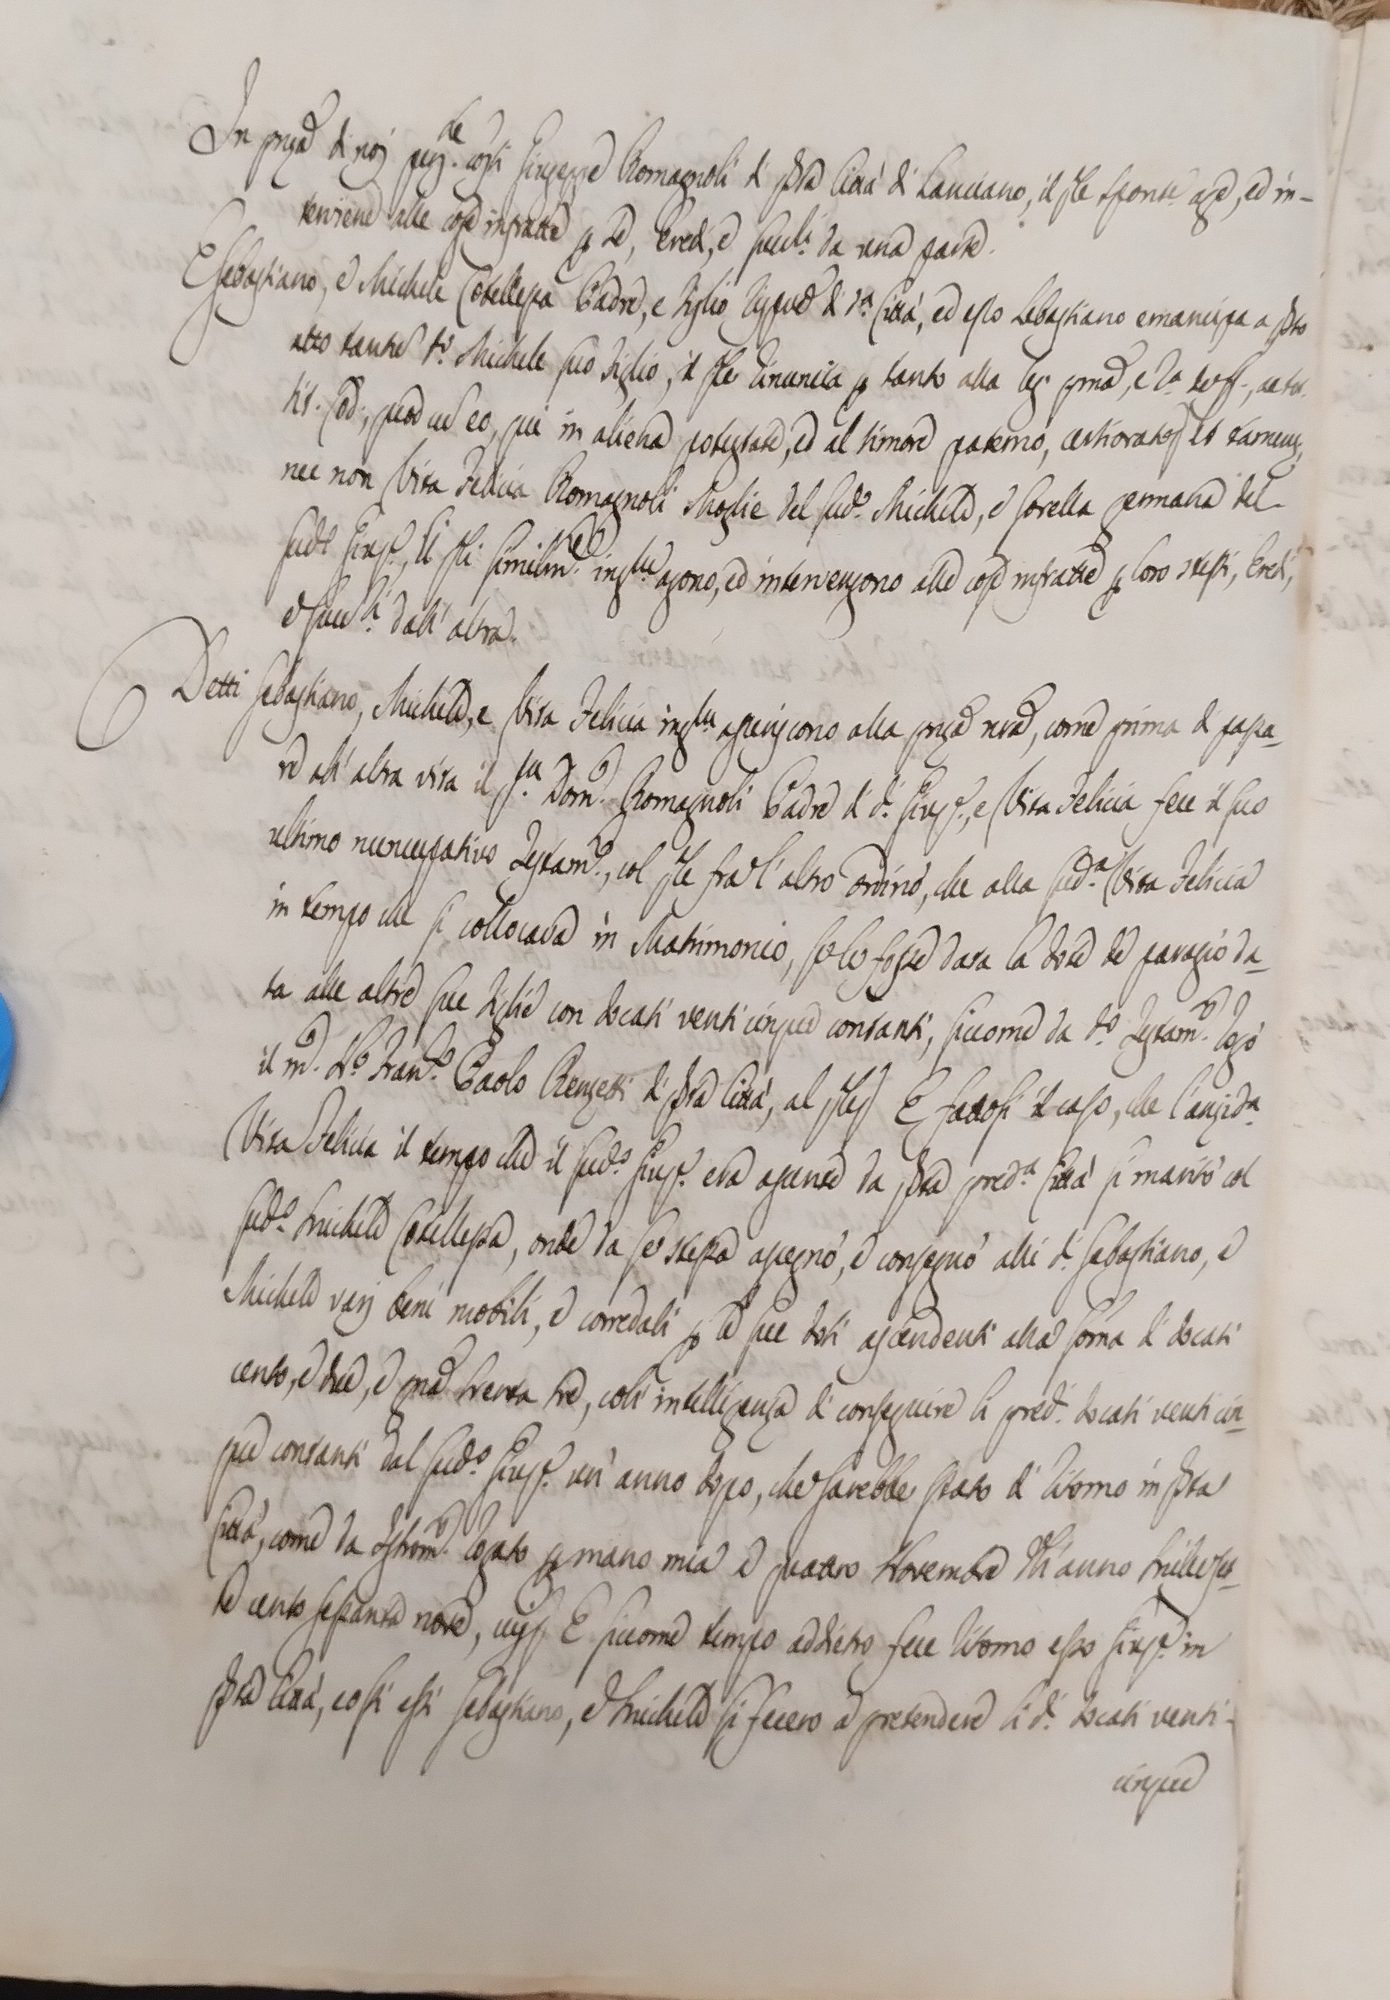 In pnza di noi pers.le costi Giuseppe Romagnoli di qsta Città di Lanciano, il qle sponte age, ed in-
terviene alle cose infratte p se, Eredi, e succ.ri da una parte.
E Sebastiano, e Michele Cotellessa Padre, e Figlio di d.a Città, ed esso Sebastiano emancipa a qsto
atto tantum d.o Michele suo Figlio, il qle rinuncia p tanto alla leg. pma, e 2.a ff.,
tit. Cod., quod cum eo, qui in aliena potestate, ed al timore paterno, certiorato Et tamen,
nec non Vita Felicia Romagnoli Moglie del sud.o Michele, e sorella germana del
sud.o Gius.e, li qli similm.te agono, ed intervengono alle cose infratte p loro stessi, Eredi,
e succ.ri dall' altra.
Detti Sebastiano, Michele, e Vita Felicia asseriscono alla pnza nra, come prima di passa-
re all' altra vita il fu Dom.co Romagnoli Padre di d.i Gius.e, e Vita Felicia fece il suo
ultimo nuncupativo Testam.o, col qle fra l' altro ordinò, che alla sud.a Vita Felicia
in tempo che si collocava in Matrimonio, se le fosse data la dote de paragio da-
ta alle altre sue Figlie con docati venticinque contanti, siccome da d.o Testam.o rogò
il m.co N.r Fran.co Paolo Renzetti di qsta Città, al qle E fattosi il caso, che l'anzid.a
Vita Felicia il tempo che il sud.o Gius.e era assente da qsta pred.a Città si maritò col
sud.o Michele Cotellessa, onde da se stessa assegnò, e consegnò alli d.i Sebastiano, e
Michele varj beni mobili, e corredali p le sue doti ascendenti alla soma di docati
cento, e due, e gna trenta tre, coll' intelligenza di conseguire li pred.i docati venticin-
que contanti dal sud.o Gius.e un' anno dopo, che sarebbe stato di ritorno in qsta
Città, come da Istrom.o rogato p mano mia e quattro Novembre dell' anno mille set-
te cento settanta nove, E siccome tempo addietro fece ritorno esso Gius.e in
qsta Città, così essi Sebastiano, e Michele si fecero a pretendere li d.i docati venti-
cinque